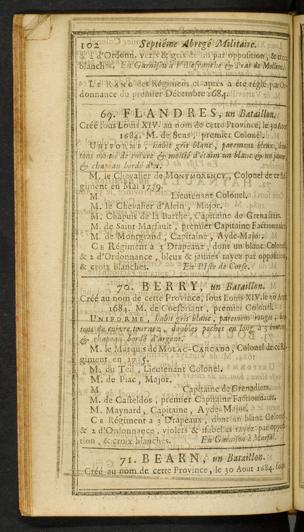 102 Septiéme Abregé Militaire.
& 2 d'Ordonn. verts & gris de lin par opposition, & croix
blanches. En Garnison à Villefranche & Prat de Mollou.
LE RANG des Régimens ci-après a été réglé par Or-
donnance du premier Décembre 1684.
69. FLANDRES, un Bataillon.
Créé sous Louis XIV. au nom de cette Province, le 30 Aout
1684. M. de Sens, premier Colonel.
UNIFORME, habit gris blanc, paremens bleus, bou-
tons moitié de cuivre & moitié d'étaim un blanc & un jaune,
& chapeau bordé d'or.
M. le Chevalier de MONTMORENCY, Colonel de ce Ré-
giment en Mai 1739.
M. Lieutenant Colonel.
M. le Chevalier d'Alein, Major.
M. Chapuis de la Barthe, Capitaine de Grenadiers.
M. de Saint Marsault, premier Capitaine Factionnaire.
M. de Mongrand, Capitaine, Ayde-Major.
CE Régiment a 3 Drapeaux, dont un blanc Colonel
& 2 d'Ordonnance, bleus & jaunes rayez par opposition,
& croix blanches. En l'Isle de Corse.
70. BERRY, un Bataillon.
Créé au nom de cette Province, sous Louis XIV. le 30 Aout
1684. M. de premier Colonel.
UNIFORME, habit gris blanc, paremens rouges, bou-
tons de cuivre doubles poches en long à
& chapeau bordé d'argent.
M. le Marquis de MOLAC-CARCADO, Colonel de ce Ré-
giment en
M. du Teil, Lieutenant Colonel.
M. de Piac, Major.
M. Capitaine de Grenadiers.
M. de Casteldos, premier Capitaine Factionnaire.
M. Maynard, Capitaine, Ayde-Major.
CE Régiment a 3 Drapeaux, dont un blanc Colonel,
& 2 d'Ordonnance, violets & isabelles rayez par opposi-
tion, & croix blanches. En Garnison à
71. BEARN, un Bataillon.
Créé au nom de cette Province, le 30 Aout 1684. sous